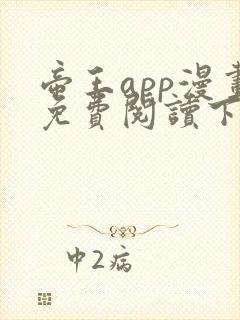 帝王app漫畫
免費閱讀下
中2病